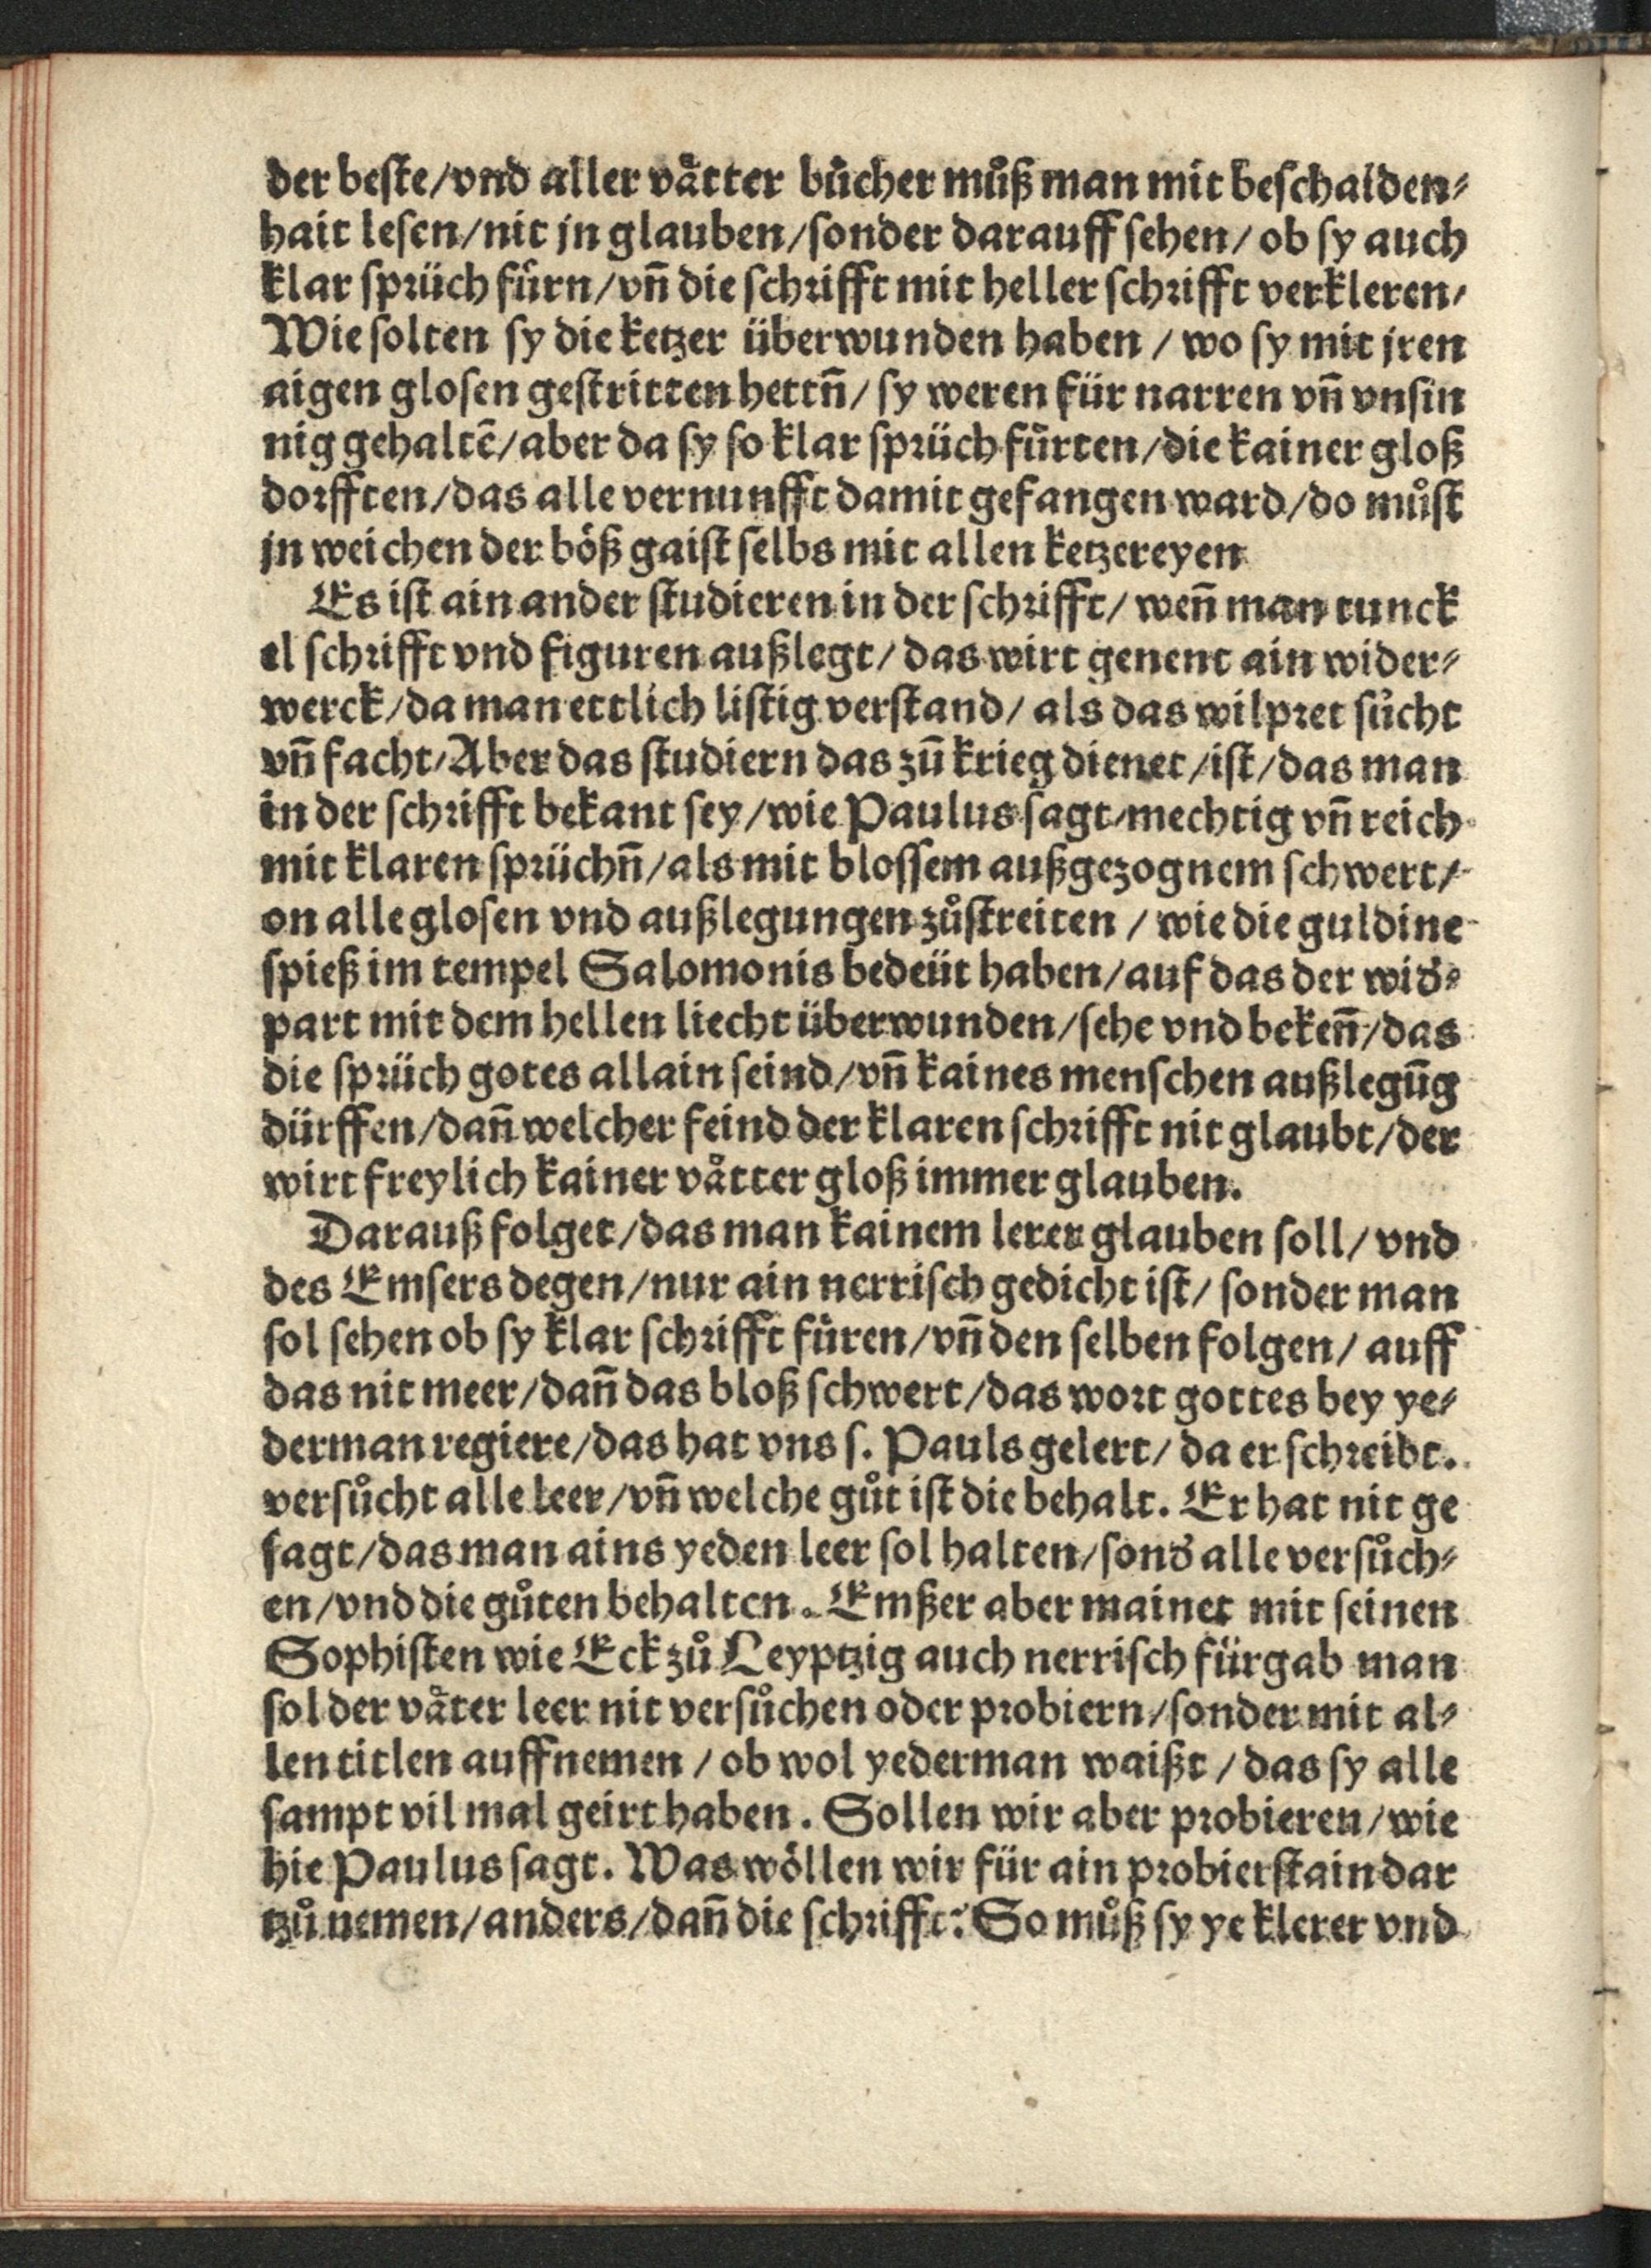 der beſte/vnd aller vaͤtter buͤcher muͦß man mit beſchaiden⸗
hait leſen/nit jn glauben/ſonder darauff ſehen/ ob ſy auch
klar ſpꝛüch fuͤrn/vñ die ſchꝛifft mit heller ſchꝛifft verkleren/
Wie ſolten ſy die ketzer überwunden haben / wo ſy mit jren
aigen gloſen geſtritten hettñ/ ſy weren für narren vñ vnſin
nig gehaltē/aber da ſy ſo klar ſpꝛüch fuͤrten/die kainer gloß
doꝛfften/das alle vernunfft damit gefangen ward/do muͦſt
jn weichen der boͤß gaiſt ſelbs mit allen ketzereyen
Es iſt ain ander ſtudieren in der ſchꝛifft/ weñ man tunck
el ſchꝛifft vnd figuren außlegt/ das wirt genent ain wider⸗
werck/da man ettlich liſtig verſtand/ als das wilpꝛet ſuͦcht
vñ facht/Aber das ſtudiern das zū krieg dienet/iſt/das man
in der ſchꝛifft bekant ſey/wie Paulus ſagt/mechtig vñ reich
mit klaren ſpꝛüchñ/als mit bloſſem außgezognem ſchwert/
on alle gloſen vnd außlegungen zuͦſtreiten / wie die guldine
ſpieß im tempel Salomonis bedeüt haben/auf das der wid̕⸗
part mit dem hellen liecht überwunden/ſehe vnd bekeñ/das
die ſpꝛüch gotes allain ſeind/vñ kaines menſchen außlegūg
dürffen/dañ welcher feind der klaren ſchꝛifft nit glaubt/der
wirt freylich kainer vaͤtter gloß immer glauben.
Darauß folget/das man kainem lerer glauben ſoll/ vnd
des Emſers degen/nur ain nerriſch gedicht iſt/ ſonder man
ſol ſehen ob ſy klar ſchꝛifft fuͤren/vñ den ſelben folgen/ auff
das nit meer/dañ das bloß ſchwert/das woꝛt gottes bey ye⸗
derman regiere/das hat vns ſ. Pauls gelert/ da er ſchꝛeibt.
verſuͦcht alle leer/vñ welche guͦt iſt die behalt. Er hat nit ge
ſagt/das man ains yeden leer ſol halten/ſond̕ alle verſuͦch⸗
en/vnd die guͦten behalten. Emßer aber mainet mit ſeinen
Sophiſten wie Eck zuͦ Leyptzig auch nerriſch fürgab man
ſol der vaͤter leer nit verſuͦchen oder pꝛobiern/ſonder mit al⸗
len titlen auffnemen / ob wol yederman waißt / das ſy alle
ſampt vil mal geirt haben. Sollen wir aber pꝛobieren/wie
hie Paulus ſagt. Was woͤllen wir für ain pꝛobierſtain dar
tzuͦ nemen/anders/dañ die ſchꝛifft? So muͦß ſy ye klerer vnd